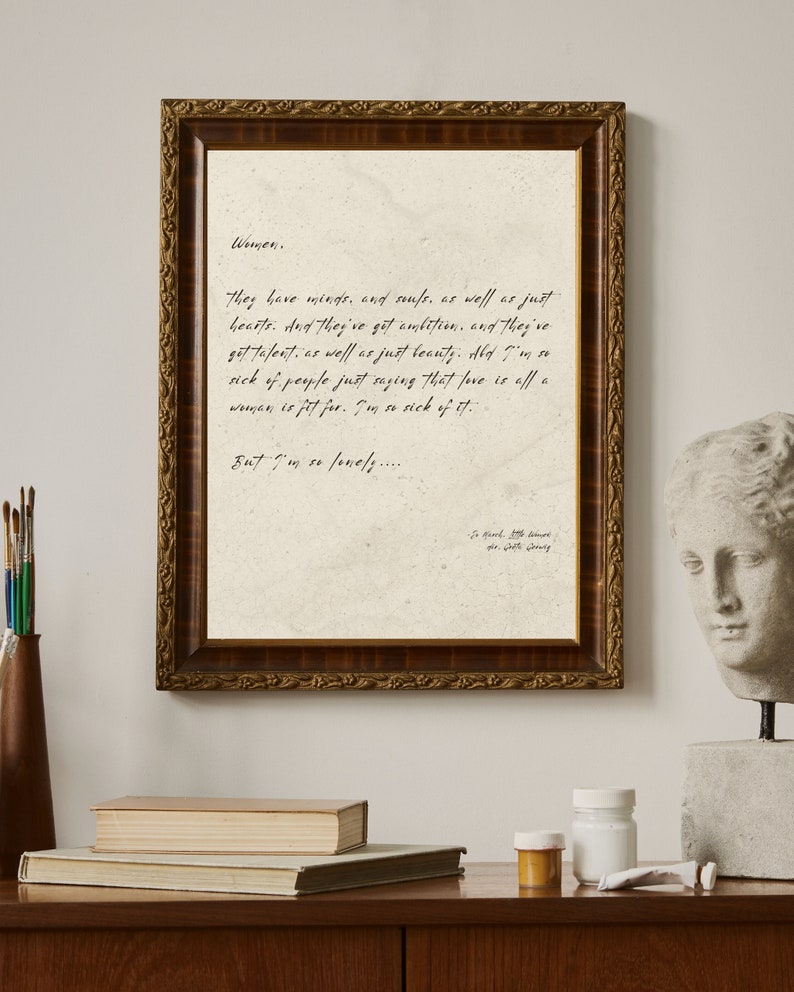 Women,
they have minds, and souls, as well as just
hearts. And they've got ambition, and they've
got talent, as well as just beauty. Abd I'm so
sick of people just saying that love is all a
woman is fit for. I'm so sick of it.
But I'm so lonely....
-Jo March, Little Women
dir. Greta Gerwig